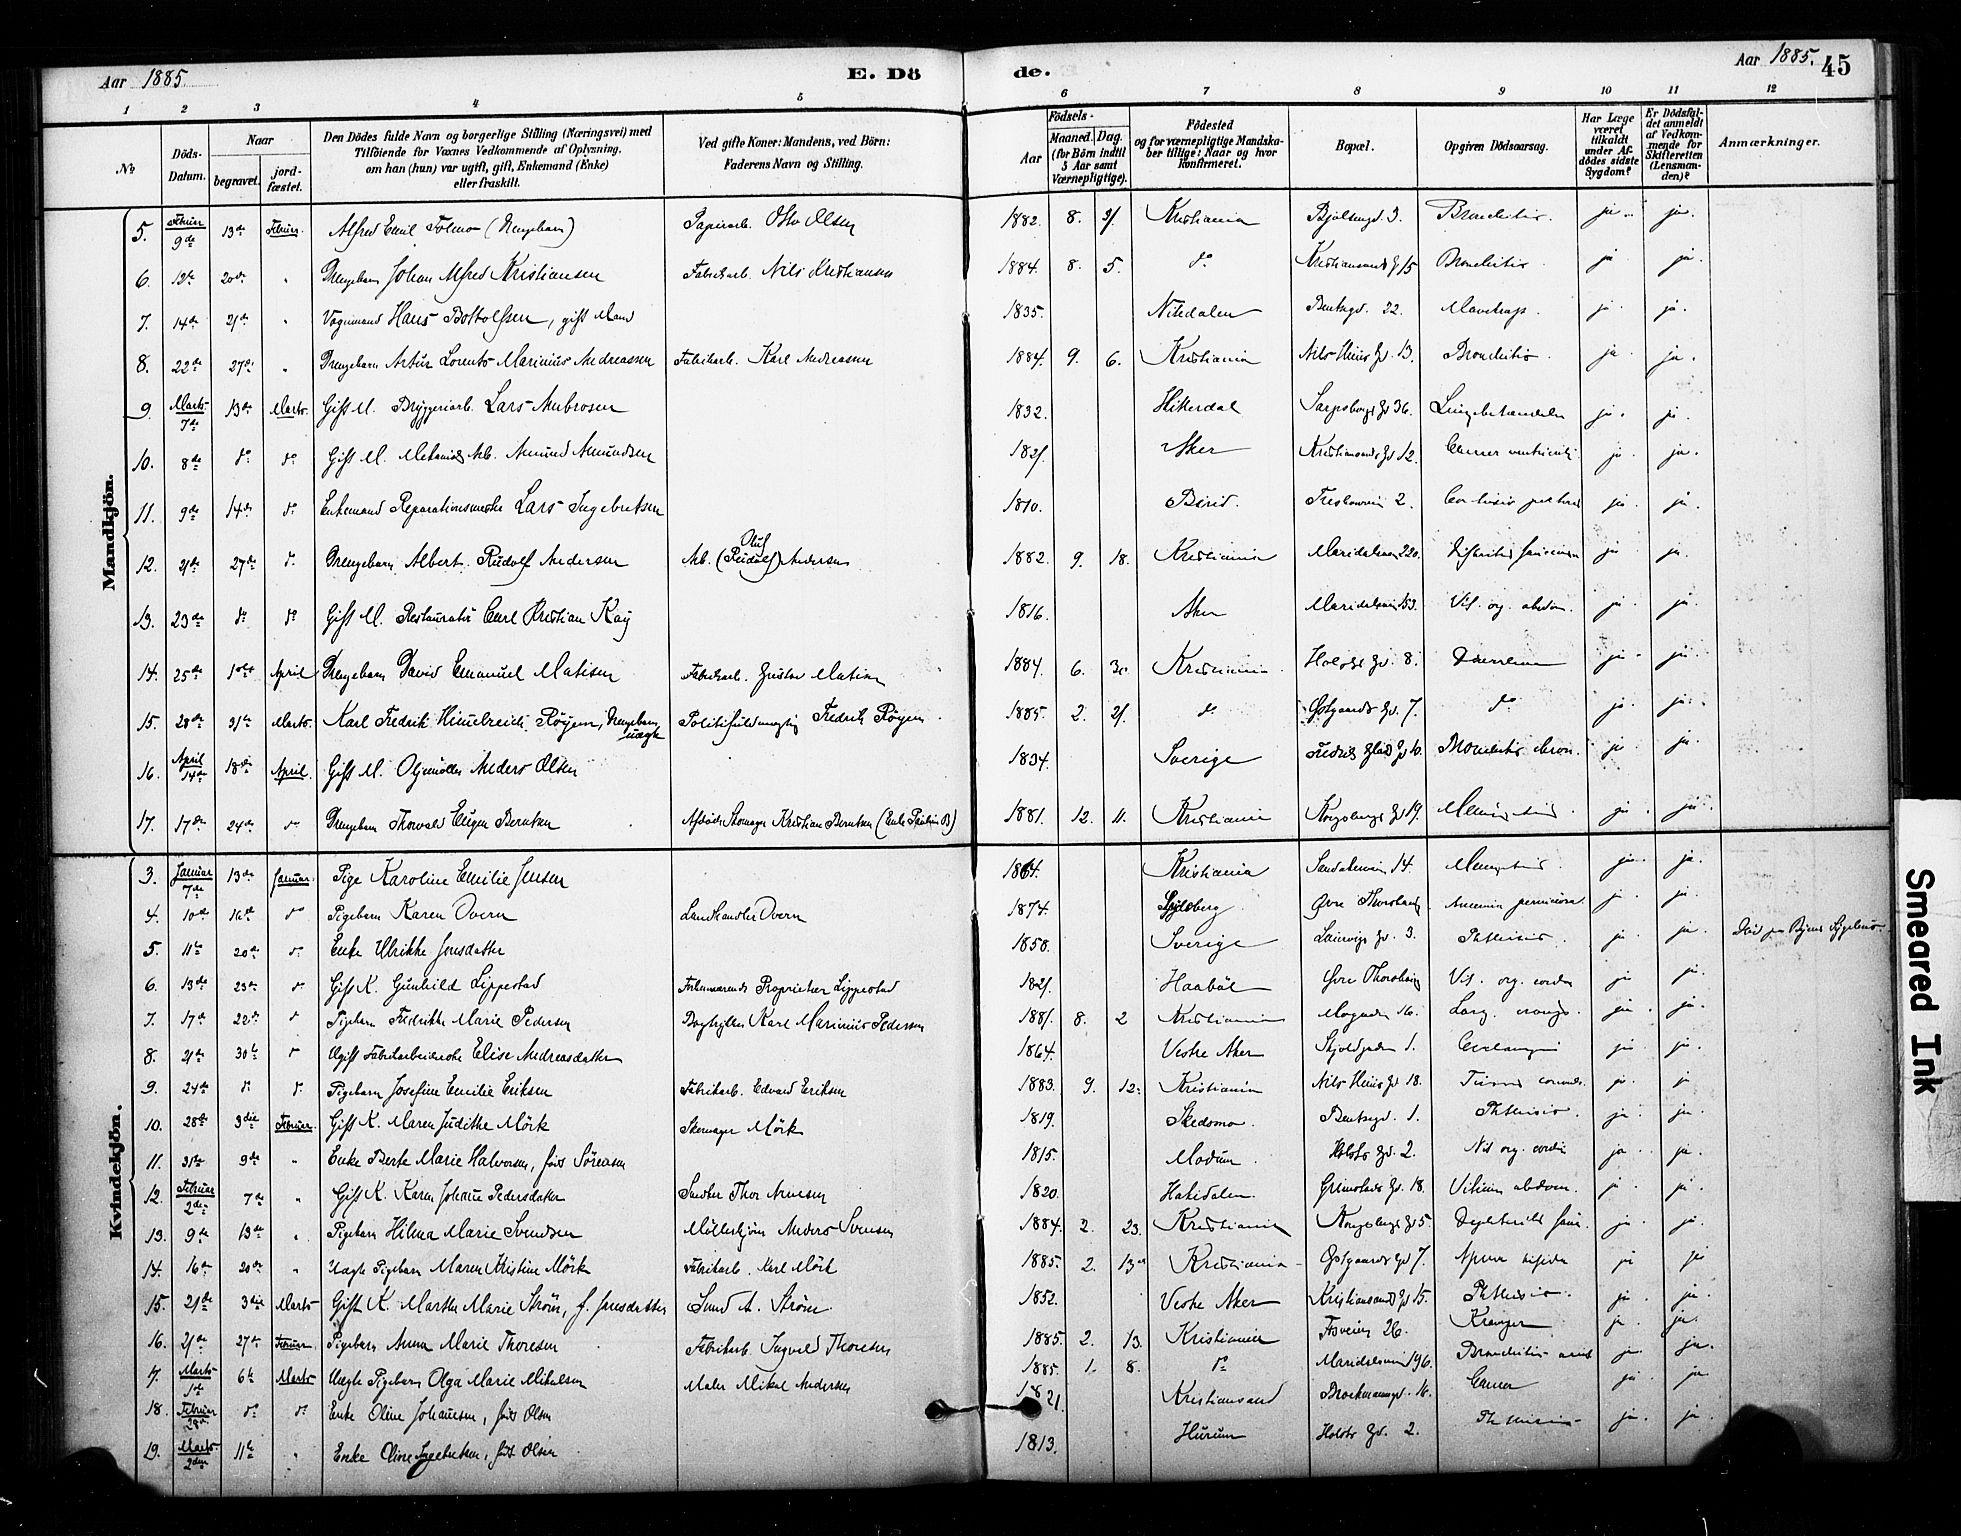 Aar 1885. E. Dö de. Aar 1885. 45
1 2 3 4 5 6 7 8 9 10 11 12
No Döds-Datum. Naar begravet. jordfæstet. Den Dödes fulde Navn og borgerlige Stilling (Næringsvei) med Tilföiende for Voxnes Vedkommende af Oplysning, om han (hun) var ugift, gift, Enkemand (Enke) eller fraskilt. Ved gifte Koner: Mandens, ved Börn: Faderens Navn og Stilling. Födsels- Aar Maaned. Dag. (for Börn indtil 5 Aar samt Værnepligtige). Födested og for værnepligtige Mandskaber tillige: Naar og hvor konfirmeret. Bopæl. Opgiven Dödsaarsag. Har Læge været tilkaldt under Afdödes sidste Sygdom? Er Dödsfaldet anmeldt af Vedkommende for Skifteretten (Lensmanden)? Anmærkninger.
Mandkjön.
5. Februar 9de 13de Februar. Alfred Emil Tolmo (Drengebarn) Papirarb. Otto Olsen 1882. 8. Kristiania Bjölsengd. 3. Bronchitis. ja. ja.
6. 20de " Drengebarn Johan Alfred Kristiansen Fabrikarb. Nils Kristiansen 1884. 8. 5. do Kristiansands Gd 15 Bronchitis ja ja.
7. 14de 21de " Vognmand Hans Bottolfsen, gift Mand 1835. Nitedalen Bentsegd. 22. ja. ja.
8. 22de 27de " Drengebarn Artur Lorents Marinius Andreassen Fabrikarb. Karl Andreassen 1884. 9. 6. Kristiania Nils Huus Gd. 13. Bronchitis. ja. ja.
9. Marts 7de 13de Marts. Gift M. Bryggeriarb. Lars Ambrosen 1832. Hitterdal Sarpsborgs Gd 36. Lungebetændelse ja. ja.
10. 8de do do Gift M. Mekanisk Arb. Amund Amundsen Aker Kristiansands Gd 12. Cancer ventriculi ja. ja.
11. 9de 14de do Enkemand Lars Ingebretsen 1810. Biri 2. ja. ja.
12. 21de 27de do Drengebarn Albert Rudolf Andersen Arb. Oluf (Rudolf) Andersen 1882. 9. 18. Kristiania Maridalsveien 220. ja ja.
13. 23de do do Gift M. Restauratör Carl Kristian Kay 1816. Aker Maridalsveien 153. Vit. org. abdom. ja. ja.
14. 25de 1ste April Drengebarn David Emanuel Matisen Fabrikarb. Gustav Matisen 1884. 6. 30 Kristiania Holsts Gd. 8. ja. ja.
15. 28de 31te Marts. Karl Fredrik Himelreich Röyem, Drengebarn uægte Politifuldmægtig Fredrik Röyem 1885. 2. do Östgaards Gd. 7. do ja. ja.
16. April 14de 18de April. Gift M. Anders Olsen 1834. Sverige Fredriks Glads Gd 10. Bronchitis chron. ja. ja.
17. 17de 24de do Drengebarn Thorvald Eugen Berntsen Afdöde Skomager Kristian Berntsen 1881. 12. 11. Kristiania Kongsbergs Gd 19. ja. ja.
Kvindekjön.
3. Januar 7de 13de Januar. Pige Karoline Emilie Jensen 1864. Kristiania Sandakerveien 14. ja. ja.
4. 10de 16de do Pigebarn Karen Overn Landhandler Overn 1874. Övre Thorshaug Anæmia perniciosa. ja. ja.
5. 11te 20de do Enke Ulrikke Jensdatter 1858. Sverige Laurvigs Gd. 3. Phthisis. ja. ja. Död paa Byens Sygehus.
6. 13de 23de do Gift K. Gunhild Lippestad Forhenværende Proprietær Lippestad Haaböl Övre Thorshaug Vit. org. cordis ja ja.
7. 17de 22de do Pigebarn Fredrikke Marie Pedersen Bogtrykker Karl Marinius Pedersen 1881. 8. 2 Kristiania 16. Laryng. ja. ja.
8. 21de 30te do Ugift Fabrikarbeiderske Elise Andreasdatter 1864. Vestre Aker Skjoldgaden 1. Eclampsi ja. ja.
9. 24de do do Pigebarn Josefine Emilie Eriksen Fabrikarb. Edvard Eriksen 1883. 9. 12. Kristiania Nils Huus Gd 18. ja. ja
10. 28de 3die Februar. Gift K. Maren Judithe Mörk Skomager Mörk 1819. Skedsmo. Bentsegd. 1. Phthisis. ja. ja.
11. 31te 9de " Enke Berte Marie Halvorsen, föd Sörensen 1815. Modum. Holsts Gd. 2. Vit org. cordis ja. ja.
12. Februar 2den 7de " Gift K. Karen Johanne Pedersdatter Snedker Thor Arnesen 1820. Hakedalen. Grimstads Gd. 18. Vitium abdom. ja. ja.
13. 9de 13de " Pigebarn Hilma Marie Svendsen Anders Svensen 1884. 2. 23. Kristiania Kongsbergs Gd 5. ja. ja.
14. 16de 20de " Uægte Pigebarn Maren Kristine Mörk Fabrikarb. Karl Mörk 1885. 2. 13de Kristiania Östgaards Gd 7. ja ja
15. 21de 3die Marts Gift K. Marthe Marie Ström, f. Jensdatter Smed A. Ström 1852. Vestre Aker Kristiansands Gd 15. Phthisis. ja. ja.
16. 21de 27de Februar. Pigebarn Anna Marie Thoresen Fabrikarb. Ingvald Thoresen 1885. 2. 13. Kristiania 26. Kramper ja. ja.
17. Marts 1ste 6te Marts Uægte Pigebarn Olga Marie Mikalsen Maler Mikal Andersen 1885. 1. 8. do Maridalsveien 196. Bronchitis ja. ja.
18. Februar 28de do do Enke Oline Johansen, föd Olsen 1821. Kristiansand Brockmannsgd. 16. Cancer ja. ja
19. Marts 2den 11te " Enke Oline Ingebretsen, föd Olsen 1813. Hurum Holsts Gd. 2. Phthisis ja. ja.
Smeared Ink